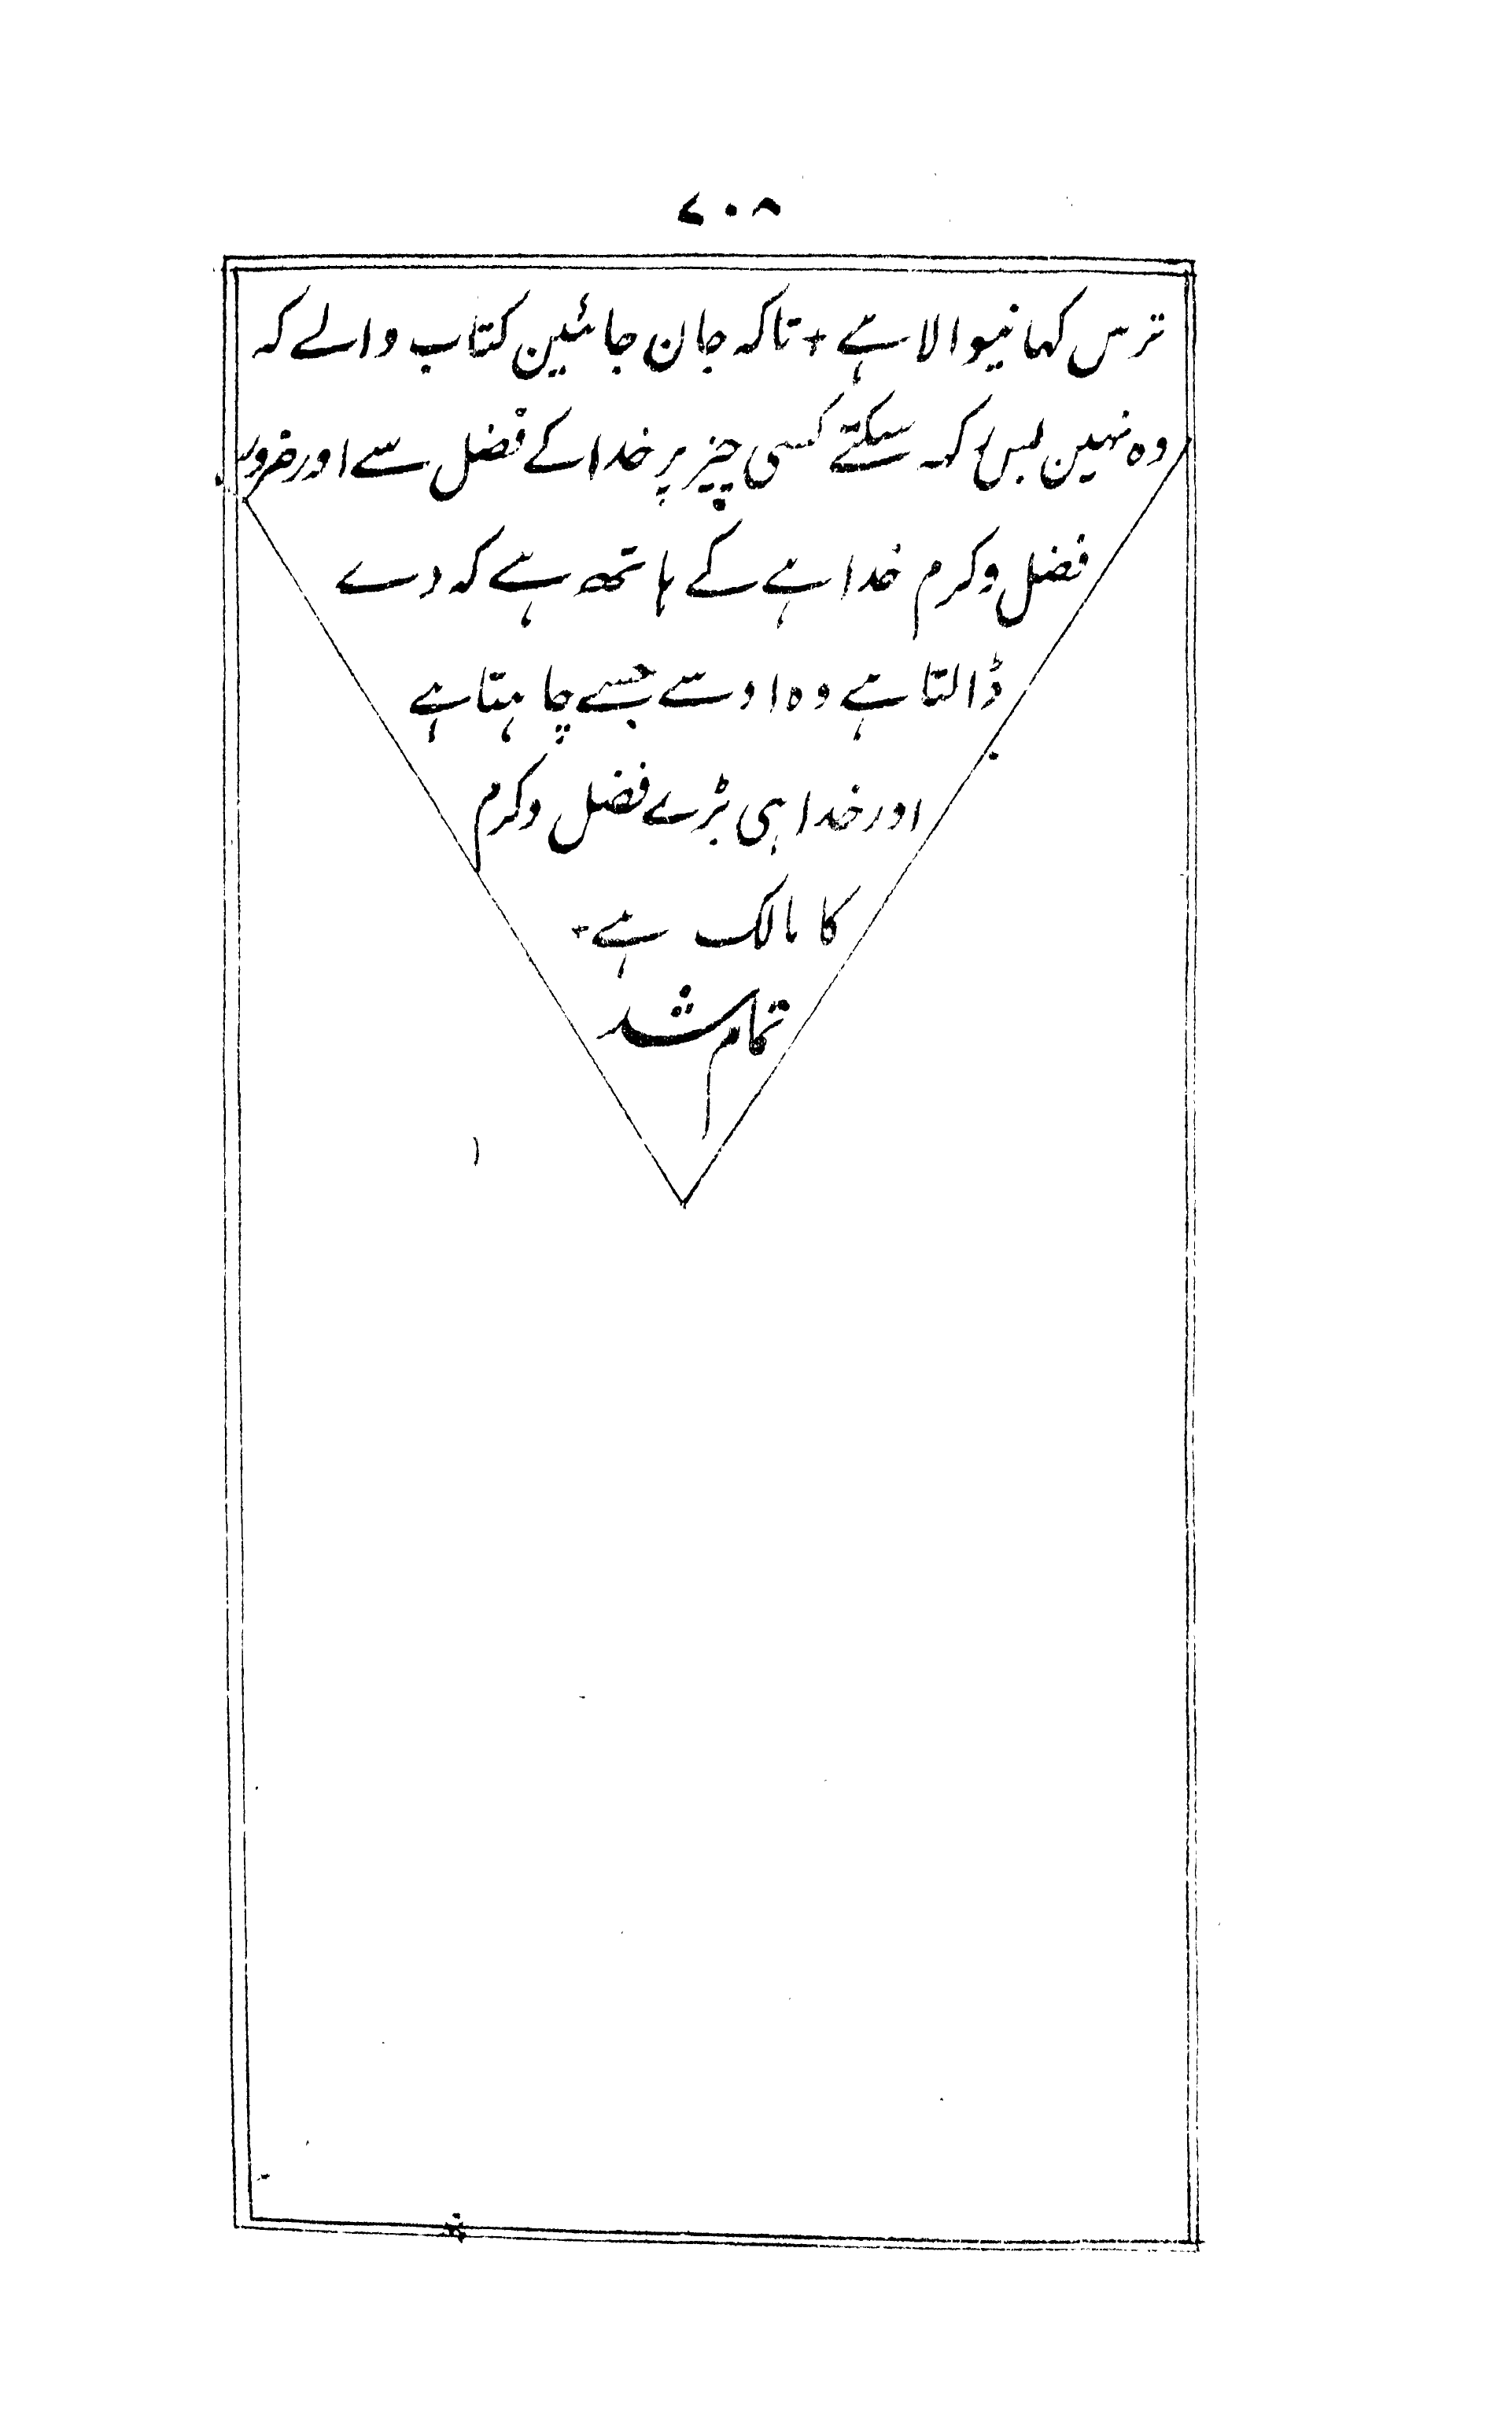 ۷۰۸
ترس کہانیوالا ہے + تاکہ جان جائین کتاب والے کہ
وہ نہین بس رکہہ سکتے کسی چیز پر خدا کے فضل سے اور ضرور
فضل و کرم خدا ہے کے ہاتھ ہے کہ دے
ڈالتا ہے وہ اوسے جسے چاہتا ہے
اور خدا ہی بڑے فضل و کرم
کا مالک ہے +
تمام شد